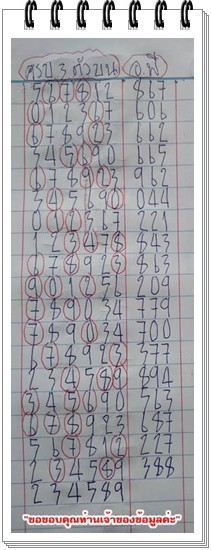 สรุป 3 ตัวบน อ.พี
567812 867
012367 606
678923 662
345690 665
678923 962
345690 044
012367 221
123478 843
678923 863
901256 209
789034 779
789034 700
678923 377
234589 894
345690 563
678923 687
567812 227
234589 388
234589
"ขอขอบคุณท่านเจ้าของข้อมูลค่ะ"